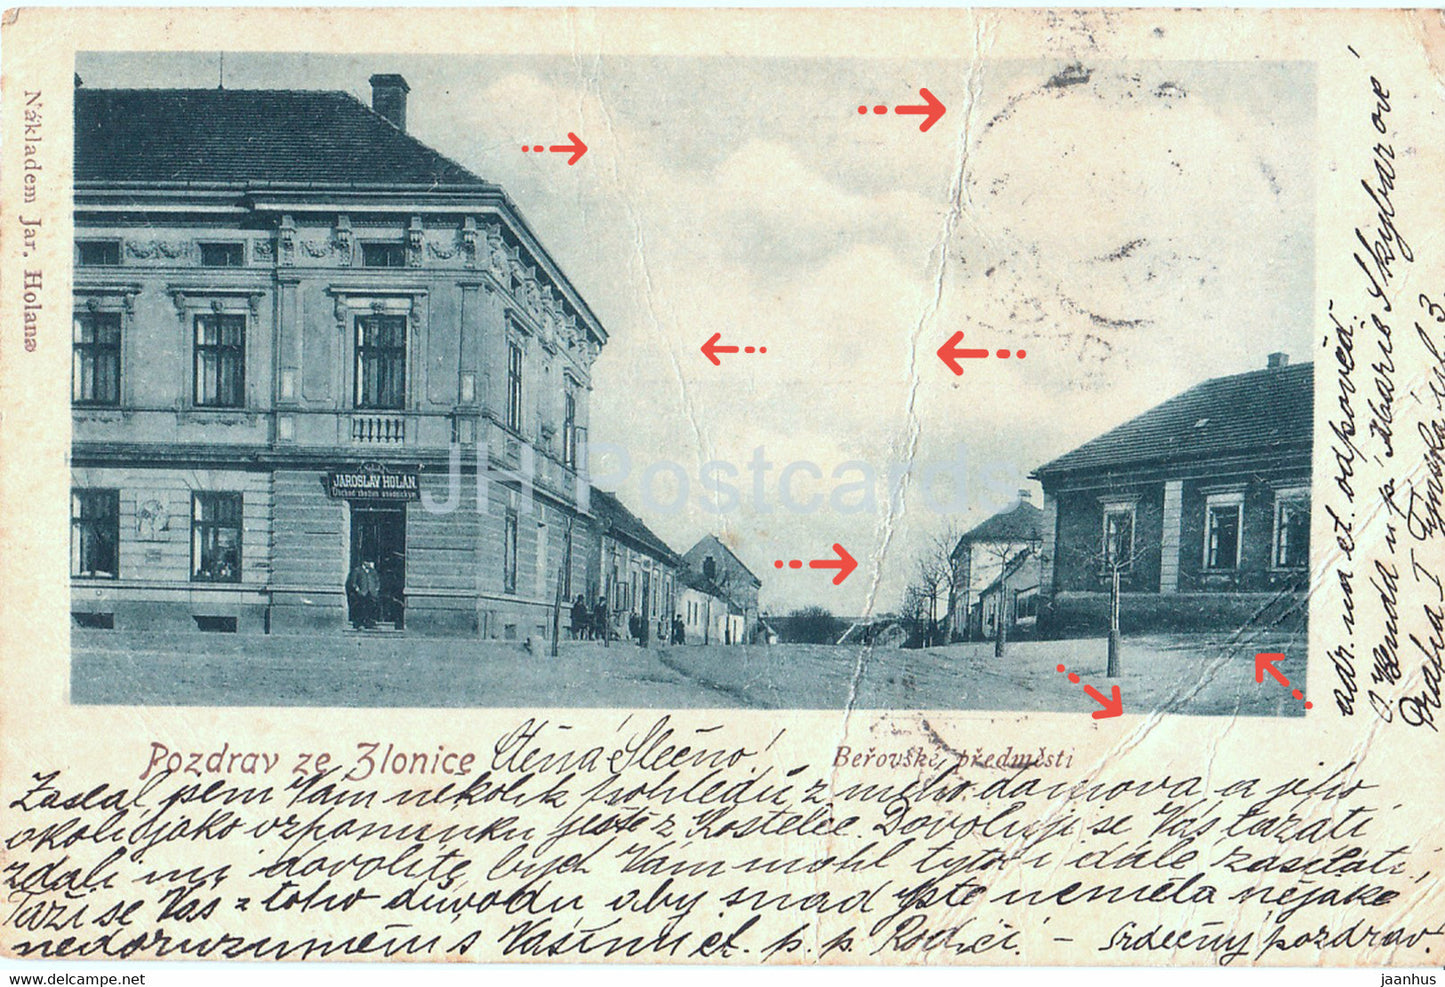 Nákladem Jar. Holana
JAROSLAV HOLAN.
Obchod zbožím osadnickým
JH Postcards
Pozdrav ze Zlonice
Ctěná Slečno!
Beřovské předměstí
Zaslal jsem Vám několik pohledů z mého domova a jeho
okolí jako vzpomínku ještě z Kostelce. Dovoluji si Vás tázati
zdali mi dovolíte bych Vám mohl tyto i dále zasílati,
Táži se Vás z toho důvodu aby snad jste neměla nějaké
nedorozumění s Vašími ct. p. p. Rodiči. - Srdečný pozdrav!
adr. na ct. odpověď.
O. Henda u p. Marie Skybarové
Praha I Týnská ul. 3
©delcampe.net
jaanhus